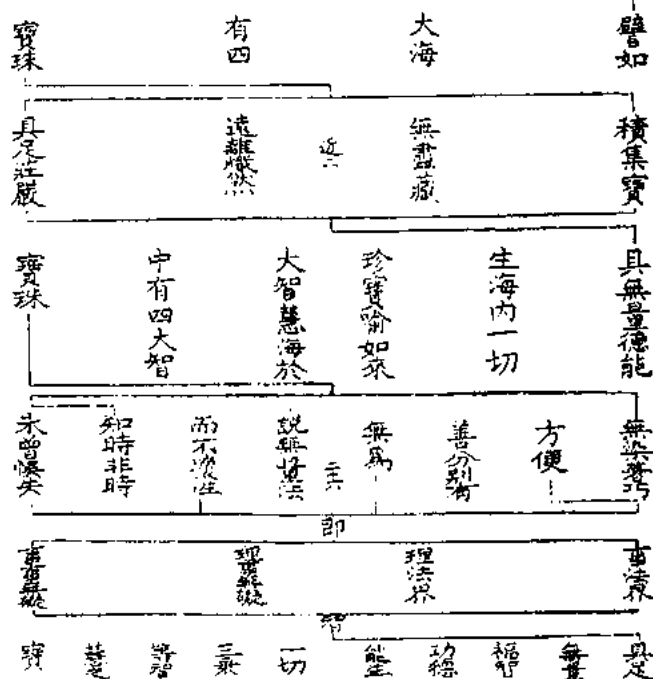 譬如
大海
有四
寶珠
積集寶
無盡藏
遠離熾然
具足莊嚴
具無量德能
生海內一切
珍寶喻如來
大智慧海於
中有四大智
寶珠
無染著巧
方便
善分別有
無為
說無量法
而不壞性
知時非時
未曾悞失
即
事法界
理法界
理事無礙
事事無礙
具足
無量
福智
功德
能生
一切
三乘
等智
慧之
寶